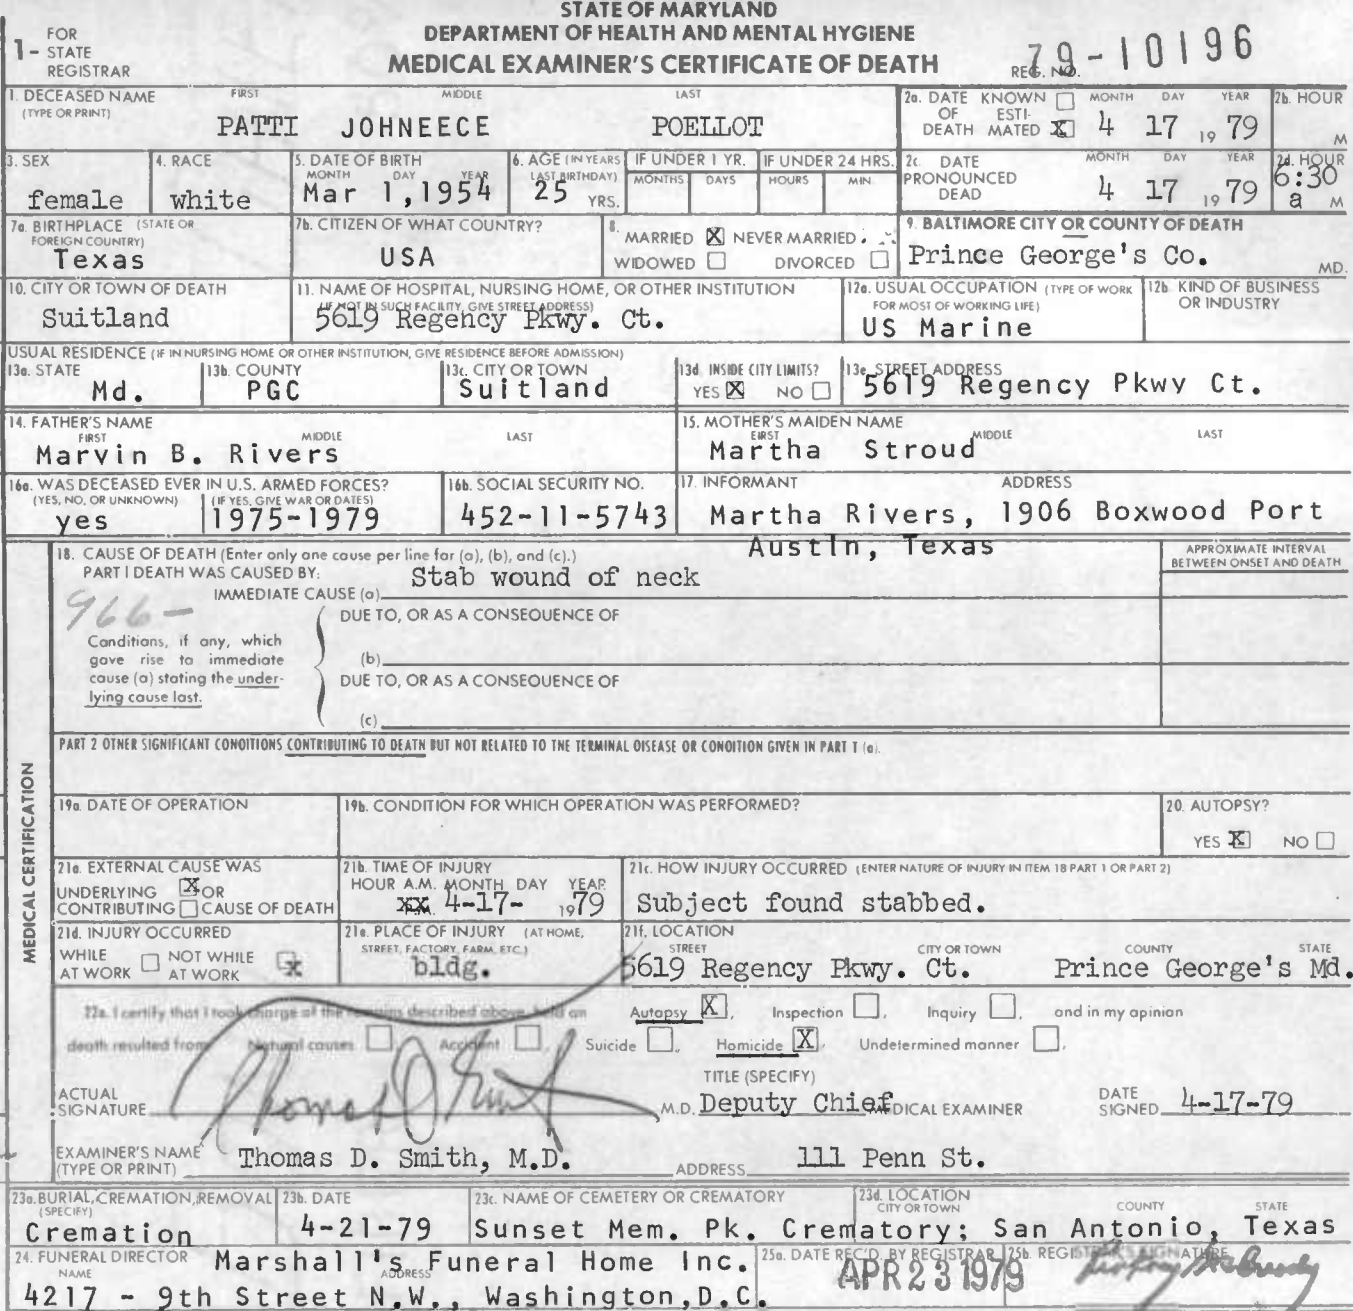 STATE OF MARYLAND
DEPARTMENT OF HEALTH AND MENTAL HYGIENE
MEDICAL EXAMINER'S CERTIFICATE OF DEATH
1- FOR STATE REGISTRAR
REG. NO. 79-10196
1. DECEASED NAME (TYPE OR PRINT) FIRST MIDDLE LAST
PATTI JOHNEECE POELLOT
2a. DATE OF DEATH KNOWN ☐ ESTIMATED ☒ MONTH DAY YEAR
4 17 1979
2b. HOUR M
3. SEX female
4. RACE white
5. DATE OF BIRTH MONTH DAY YEAR
Mar 1, 1954
6. AGE (IN YEARS LAST BIRTHDAY) 25 YRS.
IF UNDER 1 YR. MONTHS DAYS
IF UNDER 24 HRS. HOURS MIN.
2c. DATE PRONOUNCED DEAD MONTH DAY YEAR
4 17 1979
2d. HOUR 6:30 a M
7a. BIRTHPLACE (STATE OR FOREIGN COUNTRY)
Texas
7b. CITIZEN OF WHAT COUNTRY?
USA
8. MARRIED ☒ NEVER MARRIED
WIDOWED ☐ DIVORCED ☐
9. BALTIMORE CITY OR COUNTY OF DEATH
Prince George's Co. MD.
10. CITY OR TOWN OF DEATH
Suitland
11. NAME OF HOSPITAL, NURSING HOME, OR OTHER INSTITUTION
(IF NOT IN SUCH FACILITY, GIVE STREET ADDRESS)
5619 Regency Pkwy. Ct.
12a. USUAL OCCUPATION (TYPE OF WORK FOR MOST OF WORKING LIFE)
US Marine
12b. KIND OF BUSINESS OR INDUSTRY
USUAL RESIDENCE (IF IN NURSING HOME OR OTHER INSTITUTION, GIVE RESIDENCE BEFORE ADMISSION)
13a. STATE Md.
13b. COUNTY PGC
13c. CITY OR TOWN Suitland
13d. INSIDE CITY LIMITS? YES ☒ NO ☐
13e. STREET ADDRESS 5619 Regency Pkwy Ct.
14. FATHER'S NAME FIRST MIDDLE LAST
Marvin B. Rivers
15. MOTHER'S MAIDEN NAME FIRST MIDDLE LAST
Martha Stroud
16a. WAS DECEASED EVER IN U.S. ARMED FORCES?
(YES, NO, OR UNKNOWN) (IF YES, GIVE WAR OR DATES)
yes 1975-1979
16b. SOCIAL SECURITY NO.
452-11-5743
17. INFORMANT ADDRESS
Martha Rivers, 1906 Boxwood Port
Austin, Texas
MEDICAL CERTIFICATION
18. CAUSE OF DEATH (Enter only one cause per line for (a), (b), and (c).)
PART I DEATH WAS CAUSED BY:
IMMEDIATE CAUSE (a) Stab wound of neck
APPROXIMATE INTERVAL BETWEEN ONSET AND DEATH
966-
Conditions, if any, which gave rise to immediate cause (a) stating the underlying cause last.
DUE TO, OR AS A CONSEQUENCE OF
(b)
DUE TO, OR AS A CONSEQUENCE OF
(c)
PART 2 OTHER SIGNIFICANT CONDITIONS CONTRIBUTING TO DEATH BUT NOT RELATED TO THE TERMINAL DISEASE OR CONDITION GIVEN IN PART 1 (a).
19a. DATE OF OPERATION
19b. CONDITION FOR WHICH OPERATION WAS PERFORMED?
20. AUTOPSY?
YES ☒ NO ☐
21a. EXTERNAL CAUSE WAS
UNDERLYING ☒ OR
CONTRIBUTING ☐ CAUSE OF DEATH
21b. TIME OF INJURY
HOUR A.M. MONTH DAY YEAR
xx. 4-17- 1979
21c. HOW INJURY OCCURRED (ENTER NATURE OF INJURY IN ITEM 18 PART 1 OR PART 2)
Subject found stabbed.
21d. INJURY OCCURRED
WHILE AT WORK ☐ NOT WHILE AT WORK ☒
21e. PLACE OF INJURY (AT HOME, STREET, FACTORY, FARM, ETC.)
bldg.
21f. LOCATION
STREET CITY OR TOWN COUNTY STATE
5619 Regency Pkwy. Ct. Prince George's Md.
22a. I certify that I took charge of the remains described above, held an Autopsy ☒, Inspection ☐, Inquiry ☐, and in my opinion
death resulted from Natural causes ☐, Accident ☐, Suicide ☐, Homicide ☒, Undetermined manner ☐.
ACTUAL SIGNATURE Thomas D. Smith M.D.
TITLE (SPECIFY)
Deputy Chief MEDICAL EXAMINER
DATE SIGNED 4-17-79
EXAMINER'S NAME (TYPE OR PRINT) Thomas D. Smith, M.D.
ADDRESS 111 Penn St.
23a. BURIAL, CREMATION, REMOVAL (SPECIFY)
Cremation
23b. DATE
4-21-79
23c. NAME OF CEMETERY OR CREMATORY
Sunset Mem. Pk. Crematory;
23d. LOCATION CITY OR TOWN COUNTY STATE
San Antonio, Texas
24. FUNERAL DIRECTOR NAME ADDRESS
Marshall's Funeral Home Inc.
4217 - 9th Street N.W., Washington, D.C.
25a. DATE REC'D. BY REGISTRAR
APR 23 1979
25b. REGISTRAR'S SIGNATURE